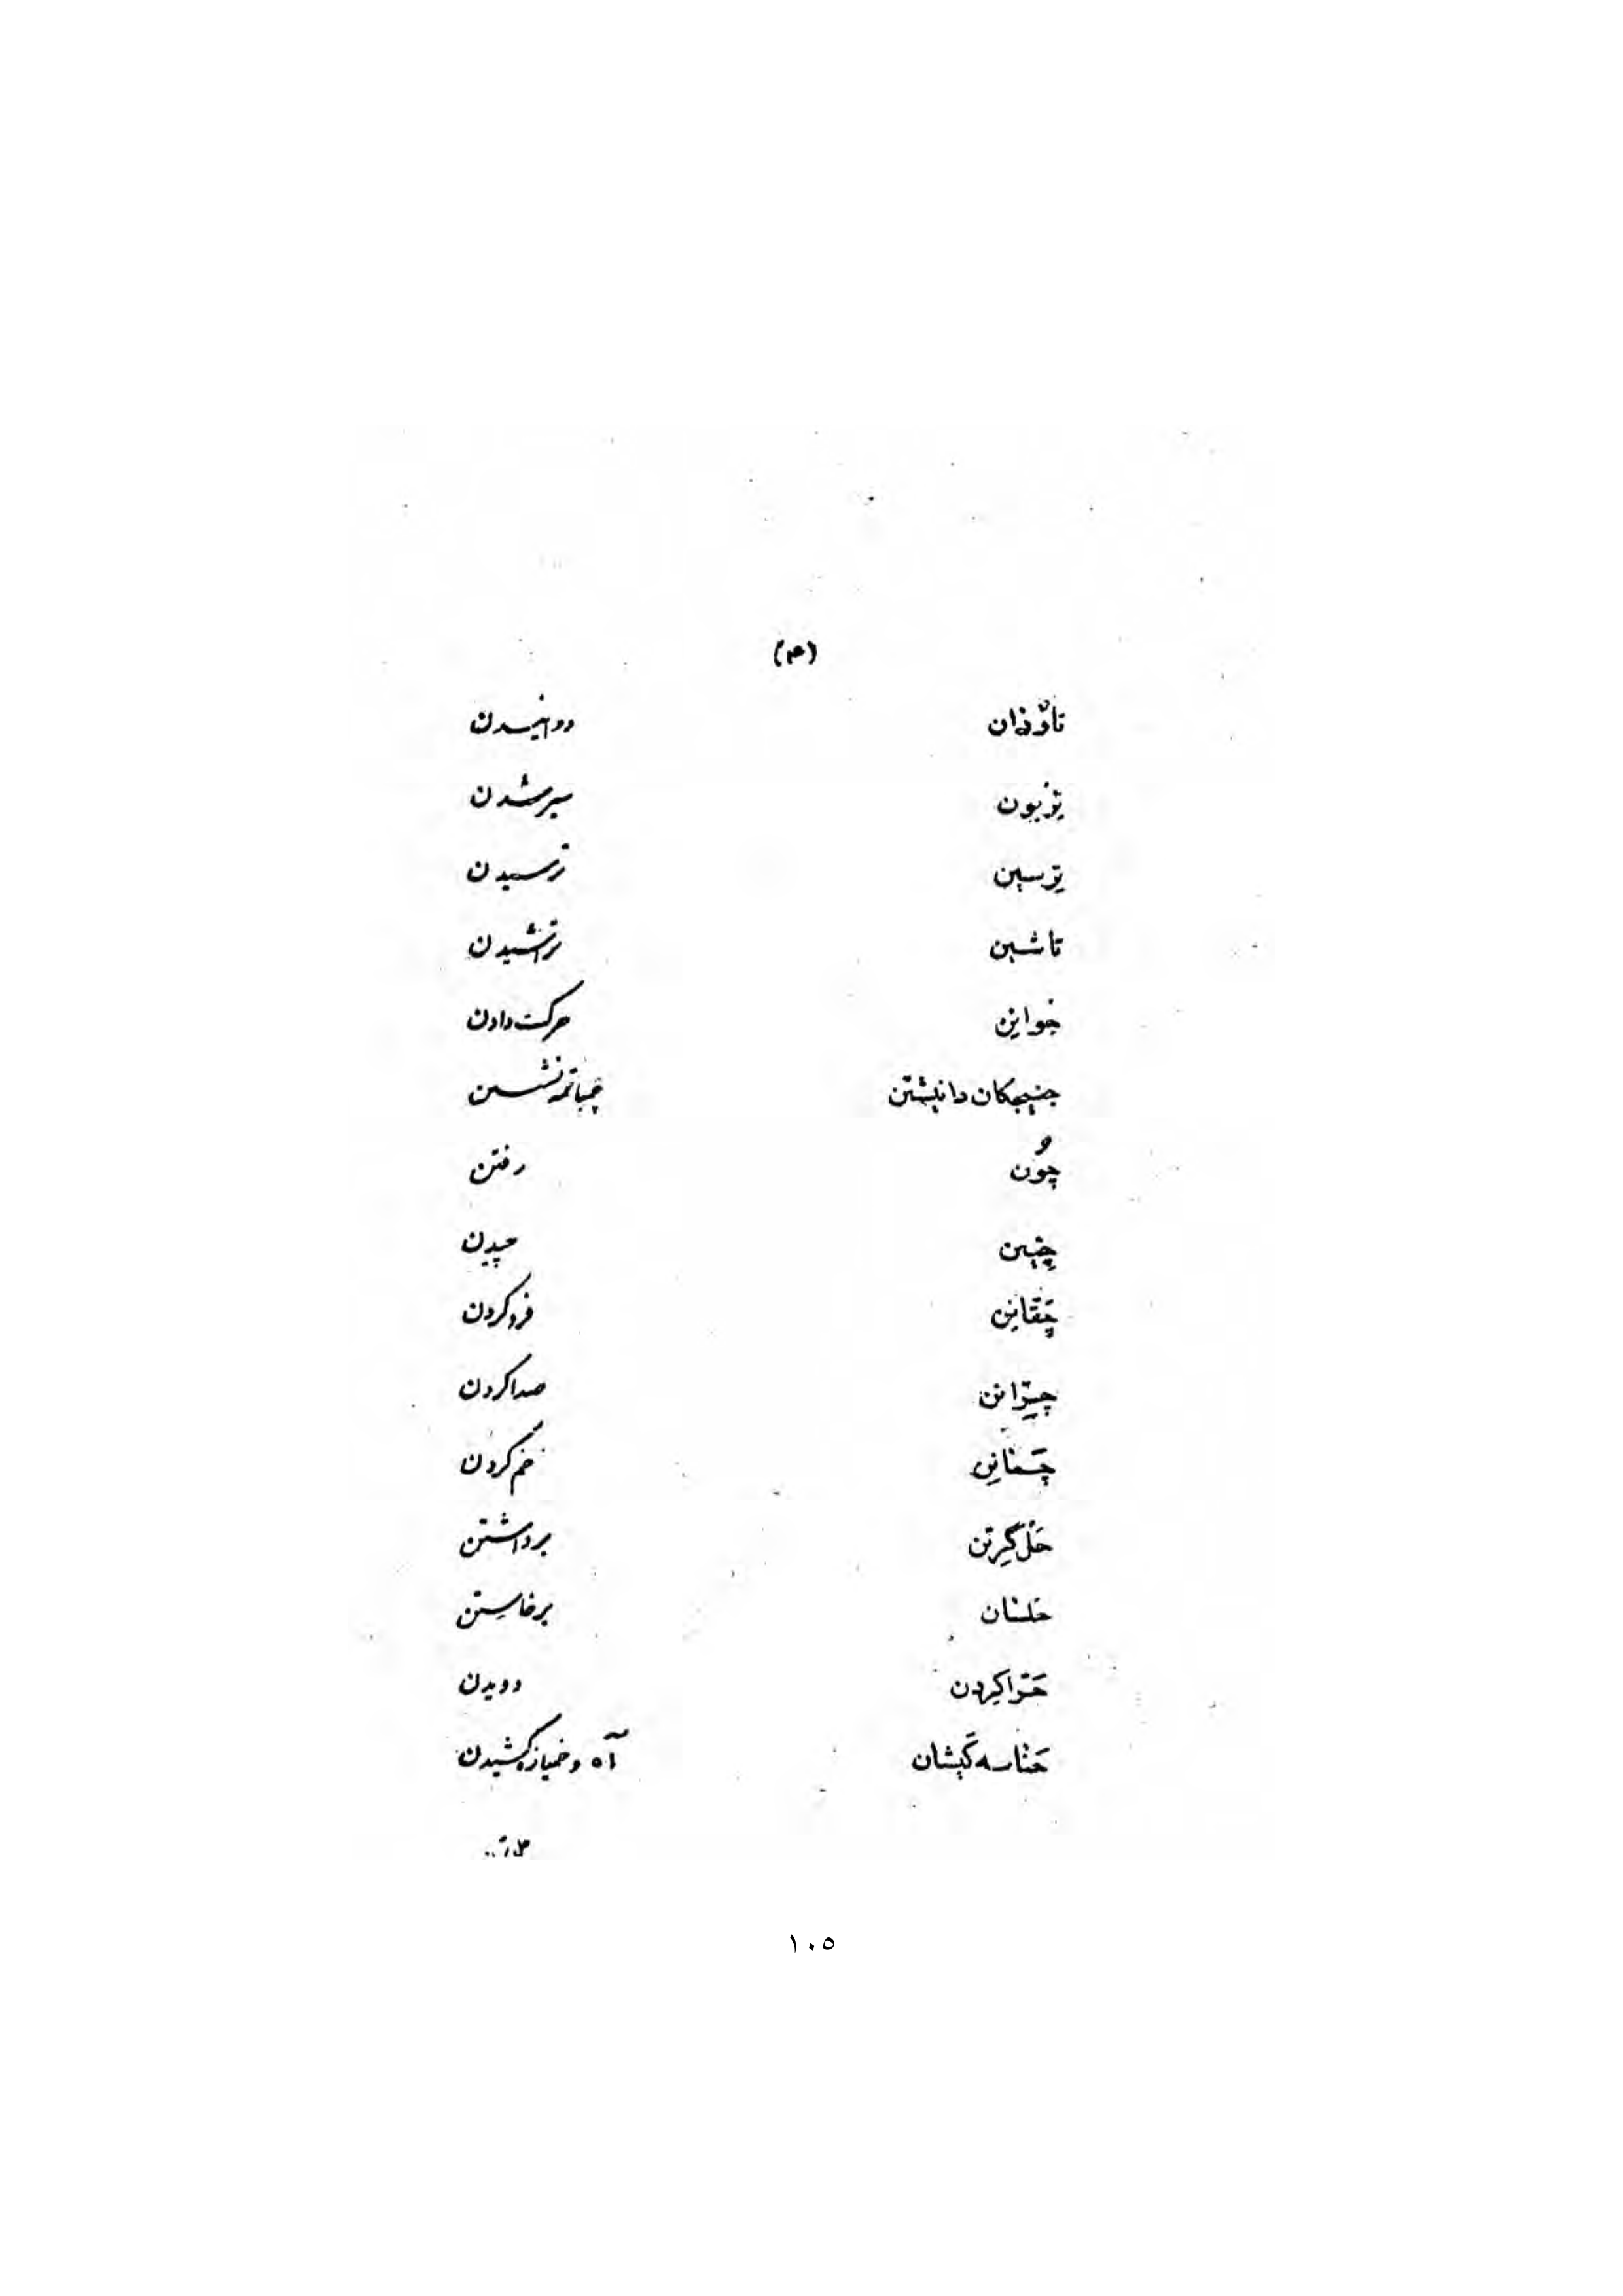 (۴)
تاوّدان دوانیدن
تِرْبون سیر شدن
تِرسین ترسیدن
تاشین تراشیدن
جواین حرکت دادن
جنیچکان دانیشتن چنباتمه نشستن
چوُن رفتن
چنین چیدن
چَقانِن فرو کردن
چِرّانن صدا کردن
چَمانِن خم کردن
حَلْ گِرتِن برداشتن
حَلسان برخاستن
حَرّا کِردن دویدن
حَناسه کَیشان آه و خمیازه کشیدن
١٠٥